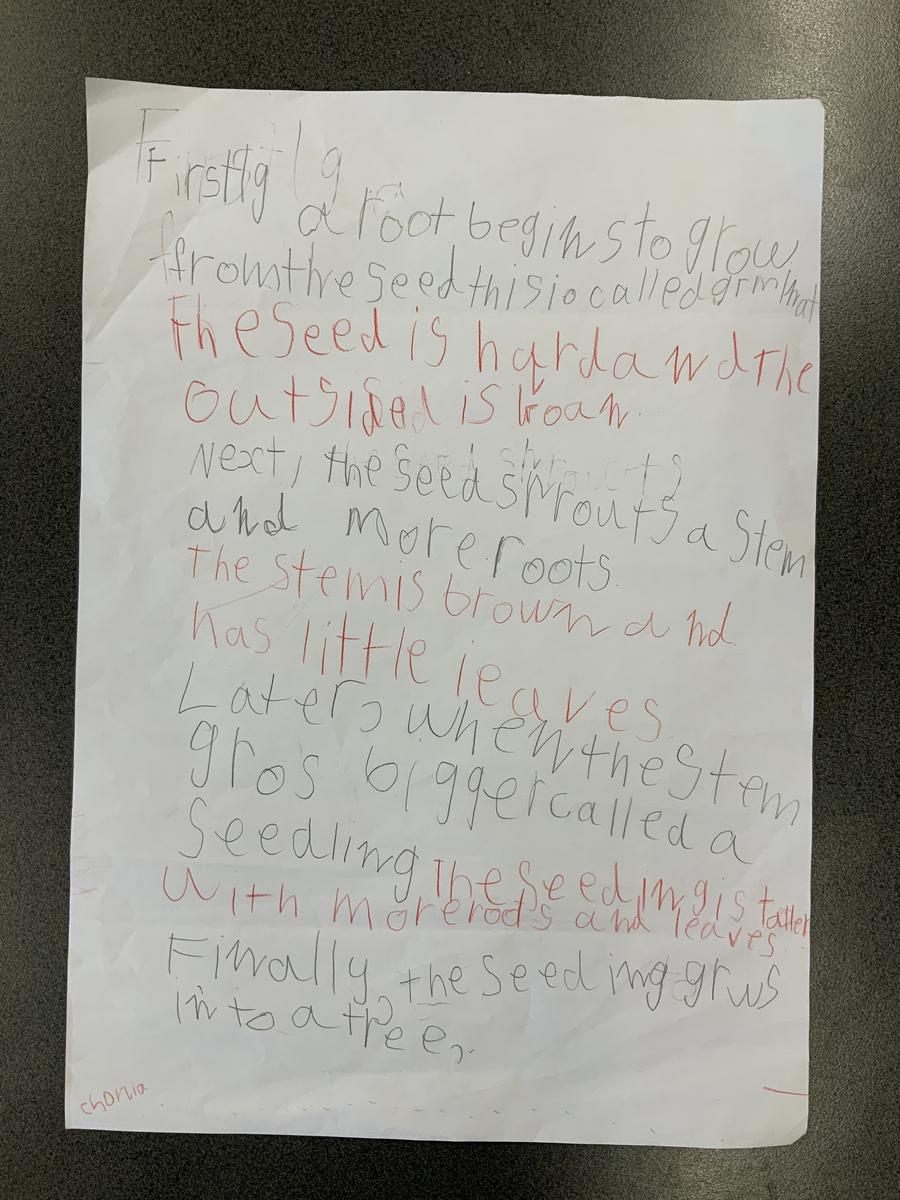 Firstlg
a root begins to grow
from the seed this is called grmhat
The seed is hard and The
outsided is broan
Next, the seed sprouts a stem
and more roots.
The stem is brown and
has little leaves
Later, when the stem
gros bigger called a
Seedling The Seeding is taller
With more roots and leaves
Finally, the seeding grws
into a tree.